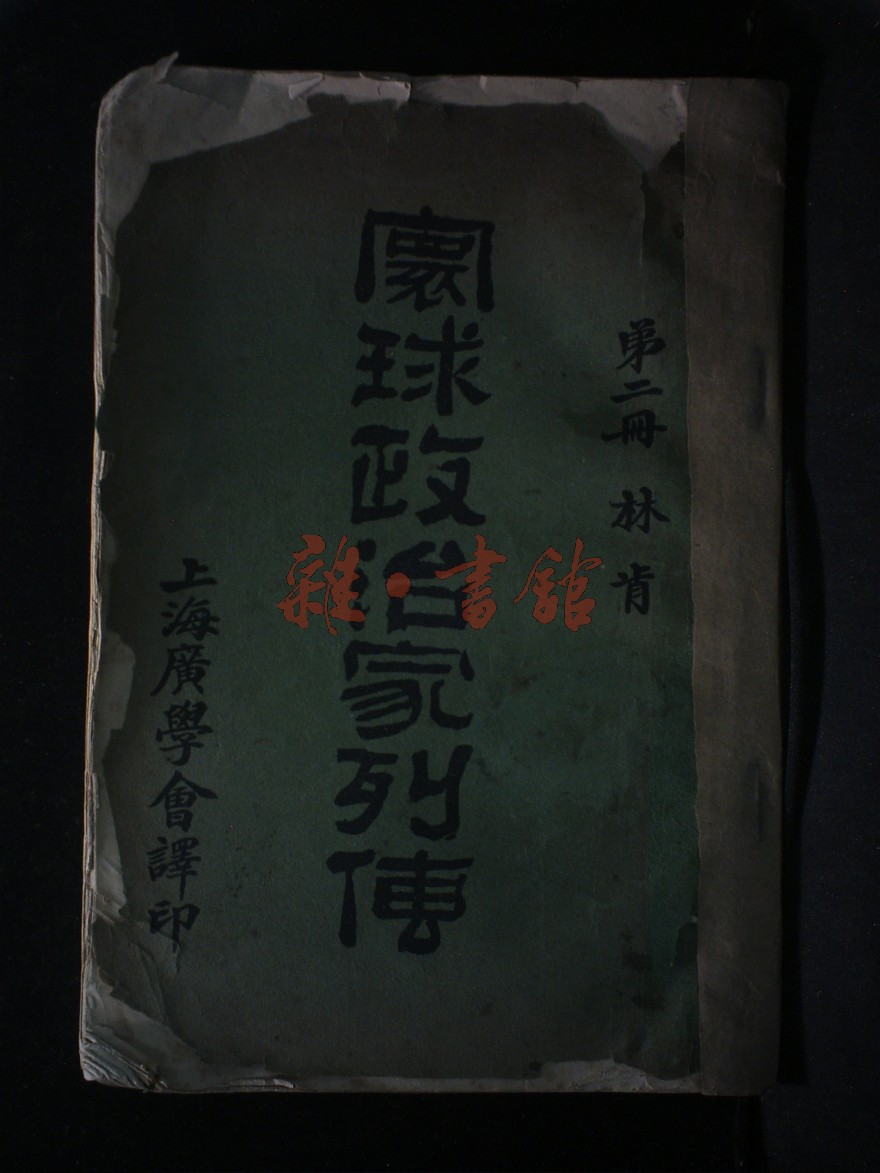 第二冊 林肯
寰球政治家列傳
上海廣學會譯印
雜·書館